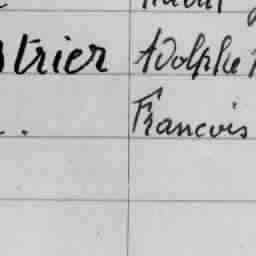 strier Adolphe
. . Francois